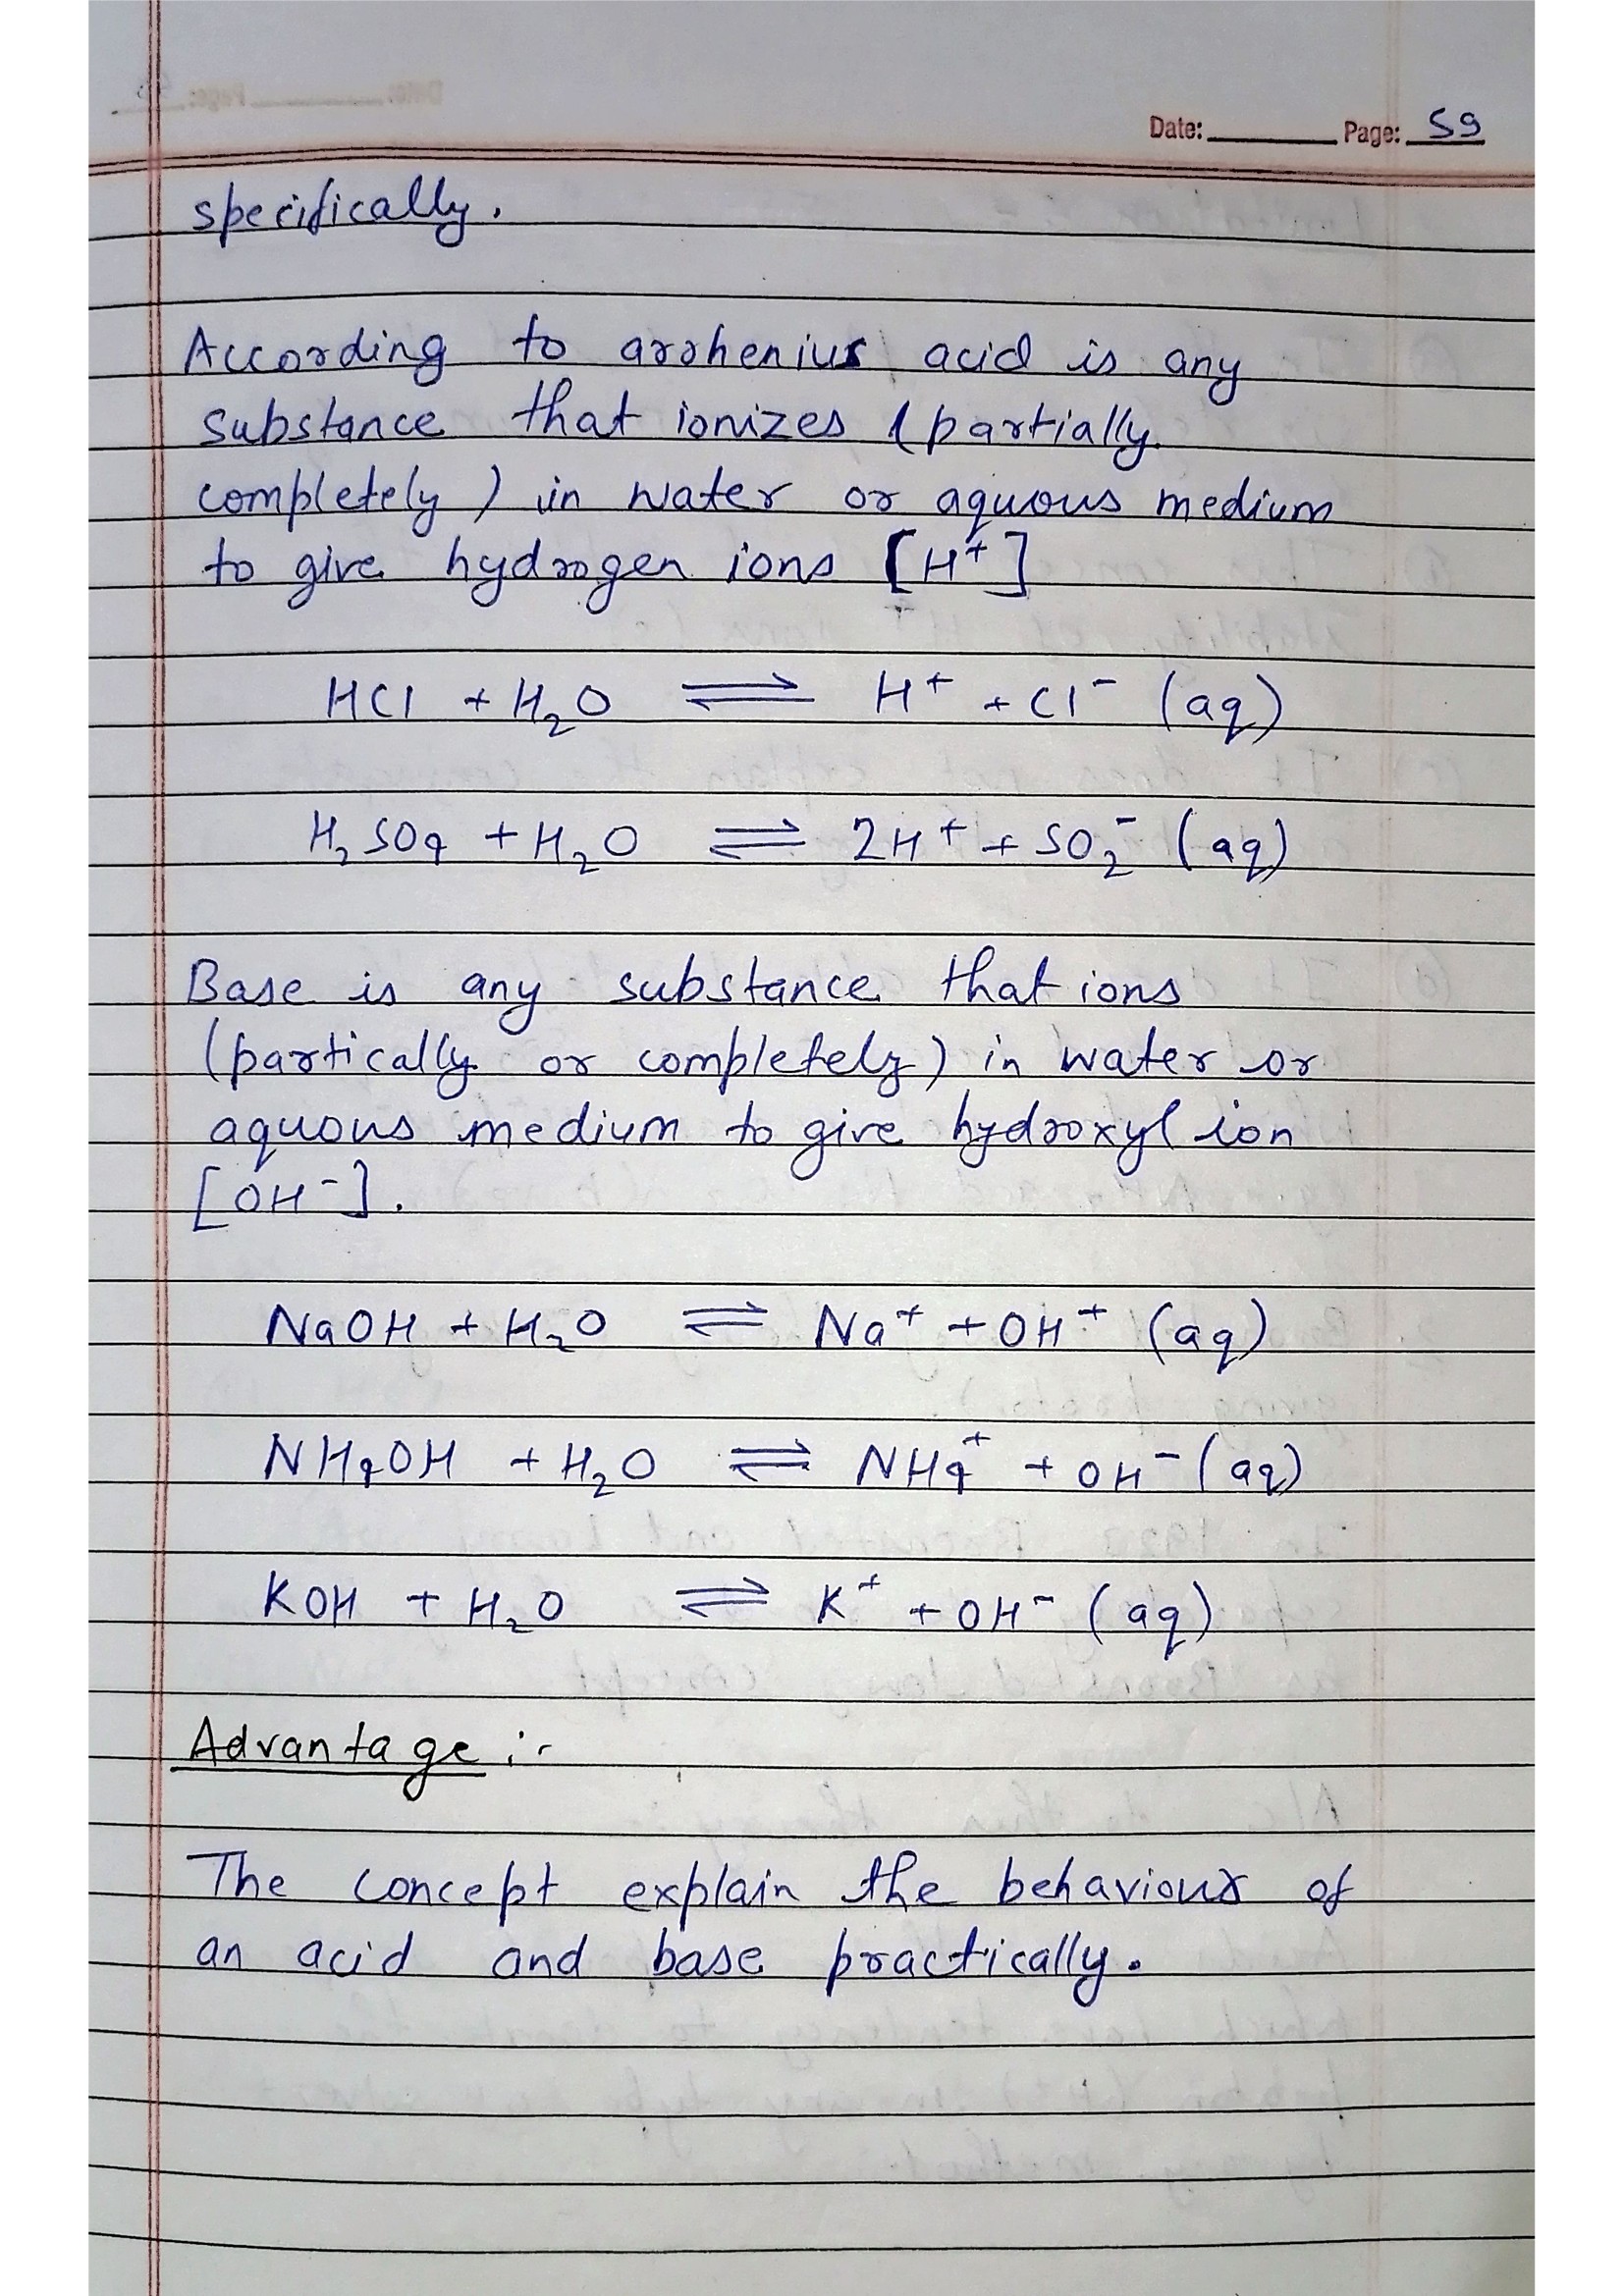 Date: Page: 59
specifically.
According to arrhenius acid is any
substance that ionizes (partially
completely) in water or aquous medium
to give hydrogen ions [H⁺]
HCl + H₂O ⇌ H⁺ + Cl⁻ (aq)
H₂SO₄ + H₂O ⇌ 2H⁺ + SO₂⁻ (aq)
Base is any substance that ions
(partically or completely) in water or
aquous medium to give hydroxyl ion
[OH⁻].
NaOH + H₂O ⇌ Na⁺ + OH⁺ (aq)
NH₄OH + H₂O ⇌ NH₄⁺ + OH⁻ (aq)
KOH + H₂O ⇌ K⁺ + OH⁻ (aq)
Advantage :-
The concept explain the behaviour of
an acid and base practically.